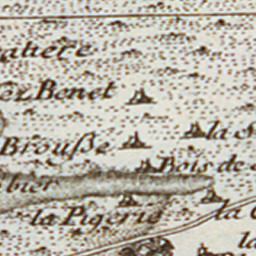 atiere
er Benet
la S
Brouſse
Bois de
bier
la Pigerie
la C
la